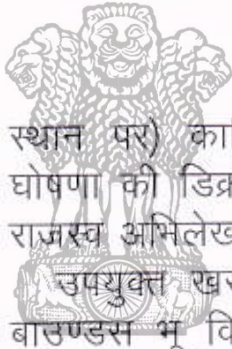 स्थान पर) का
घोषणा की डिक्र
राजस्व अभिलेख
उपयुक्त खस
बाउण्डस भू वि